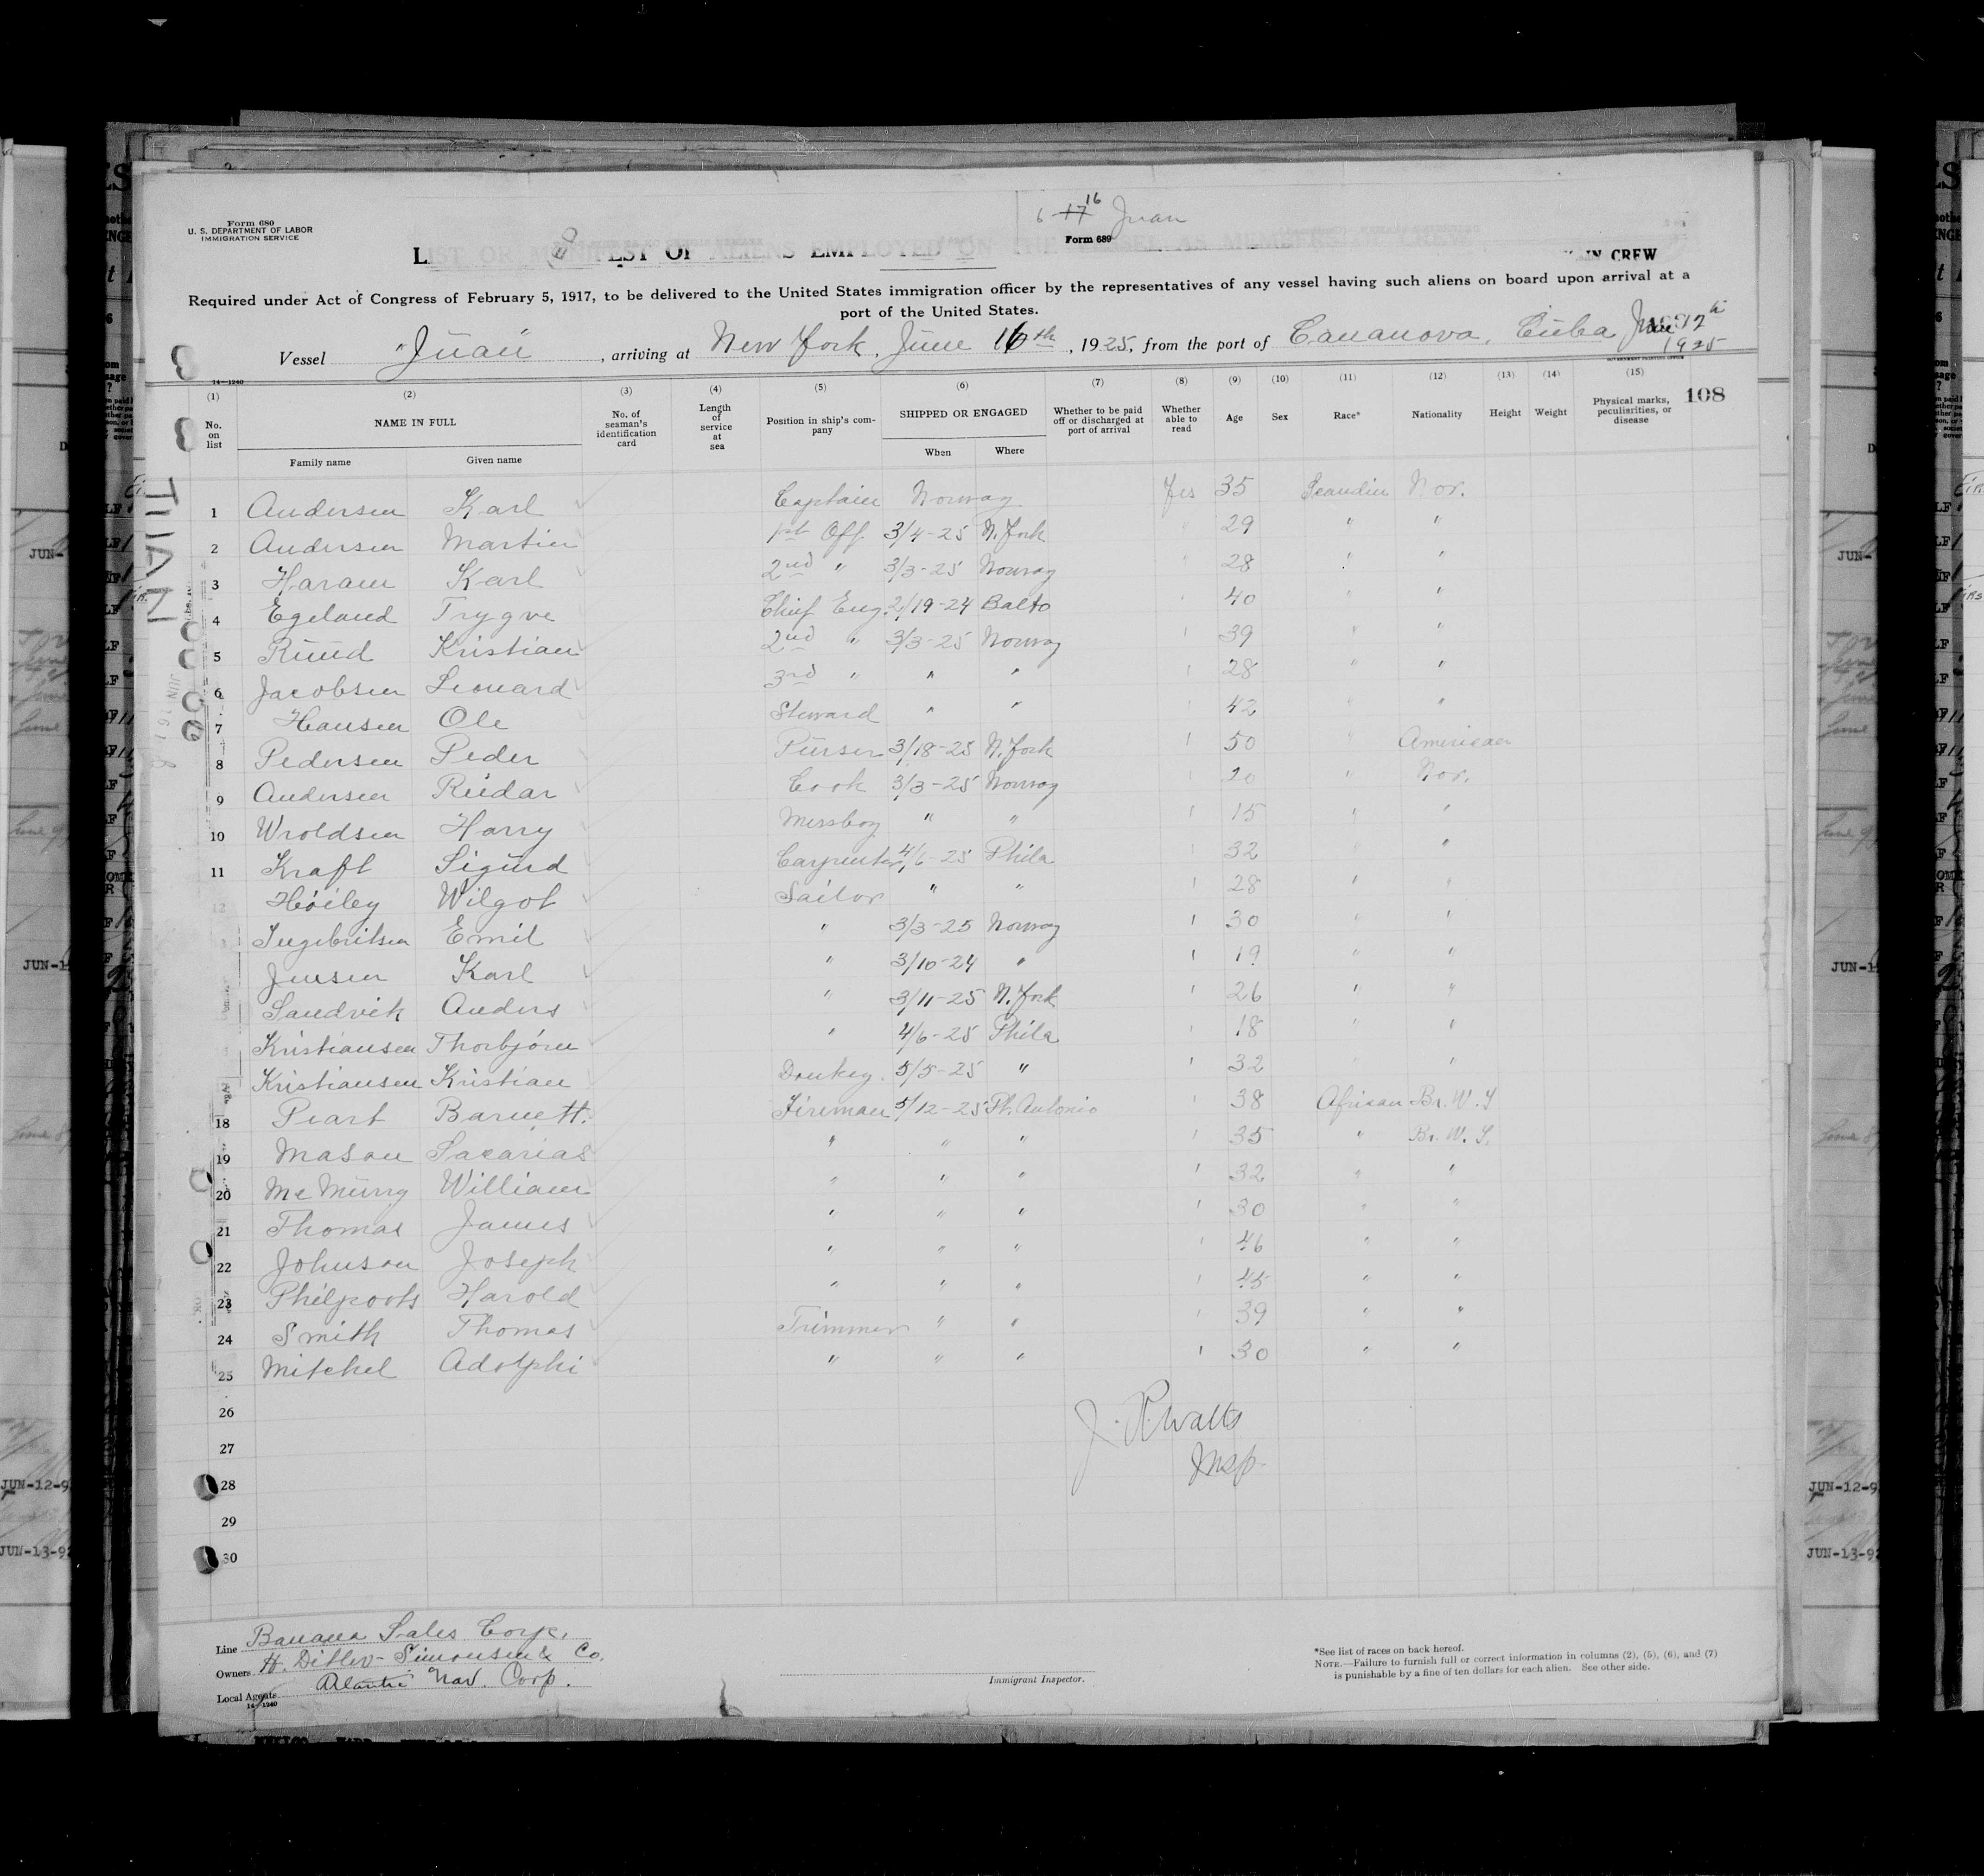 6-17 16 Juan
Form 680
U. S. DEPARTMENT OF LABOR
IMMIGRATION SERVICE
Form 689
LIST OR MANIFEST OF ALIENS EMPLOYED ON THE VESSEL AS MEMBERS OF CREW
Required under Act of Congress of February 5, 1917, to be delivered to the United States immigration officer by the representatives of any vessel having such aliens on board upon arrival at a
port of the United States.
Vessel "Juan", arriving at New York, June 16th, 1925, from the port of Cananova, Cuba June 12th
1925
GOVERNMENT PRINTING OFFICE
14—1240
108
(1) (2) (3) (4) (5) (6) (7) (8) (9) (10) (11) (12) (13) (14) (15)
No. on list NAME IN FULL No. of seaman's identification card Length of service at sea Position in ship's company SHIPPED OR ENGAGED Whether to be paid off or discharged at port of arrival Whether able to read Age Sex Race* Nationality Height Weight Physical marks, peculiarities, or disease
Family name Given name When Where
1 Andersen Karl Captain Norway Yes 35 Scandin Nor.
2 Andersen Martin 1st Off. 3/4-25 N. York " 29 " "
3 Haram Karl 2nd " 3/3-25 Norway " 28 " "
4 Egeland Trygve Chief Eng. 2/19-24 Balto " 40 " "
5 Ruud Kristian 2nd " 3/3-25 Norway " 39 " "
6 Jacobsen Leonard 3rd " " " " 28 " "
7 Hansen Ole Steward " " " 42 " "
8 Pedersen Peder Purser 3/18-25 N. York " 50 " American
9 Andersen Reidar Cook 3/3-25 Norway " 20 " Nor.
10 Wroldsen Harry Messboy " " " 15 " "
11 Kraft Sigurd Carpenter 4/6-25 Phila " 32 " "
12 Höiley Wilgot Sailor " " " 28 " "
Ingebritsen Emil " 3/3-25 Norway " 30 " "
Jensen Karl " 3/10-24 " " 19 " "
Sandvik Anders " 3/11-25 N. York " 26 " "
Kristiansen Thorbjörn " 4/6-25 Phila " 18 " "
Kristiansen Kristian Donkey. 5/5-25 " " 32 " "
18 Peart Barnett. Fireman 5/12-25 Pt. Antonio " 38 African Br. W. I
19 Mason Sacarias " " " " 35 " Br. W. I.
20 McMurry William " " " " 32 " "
21 Thomas James " " " " 30 " "
22 Johnson Joseph " " " " 46 " "
23 Philpoots Harold " " " " 45 " "
24 Smith Thomas Trimmer " " " 39 " "
25 Mitchel Adolphi " " " " 30 " "
26
27
28
29
30
J. R. Watts
Insp
Line Banana Sales Corp.
Owners H. Ditlev-Simonsen & Co.
Local Agents Atlantic Nav. Corp.
14—1240
Immigrant Inspector.
*See list of races on back hereof.
NOTE.—Failure to furnish full or correct information in columns (2), (5), (6), and (7)
is punishable by a fine of ten dollars for each alien. See other side.
JUAN
JUN 16
JUN-12-9
JUN-13-92